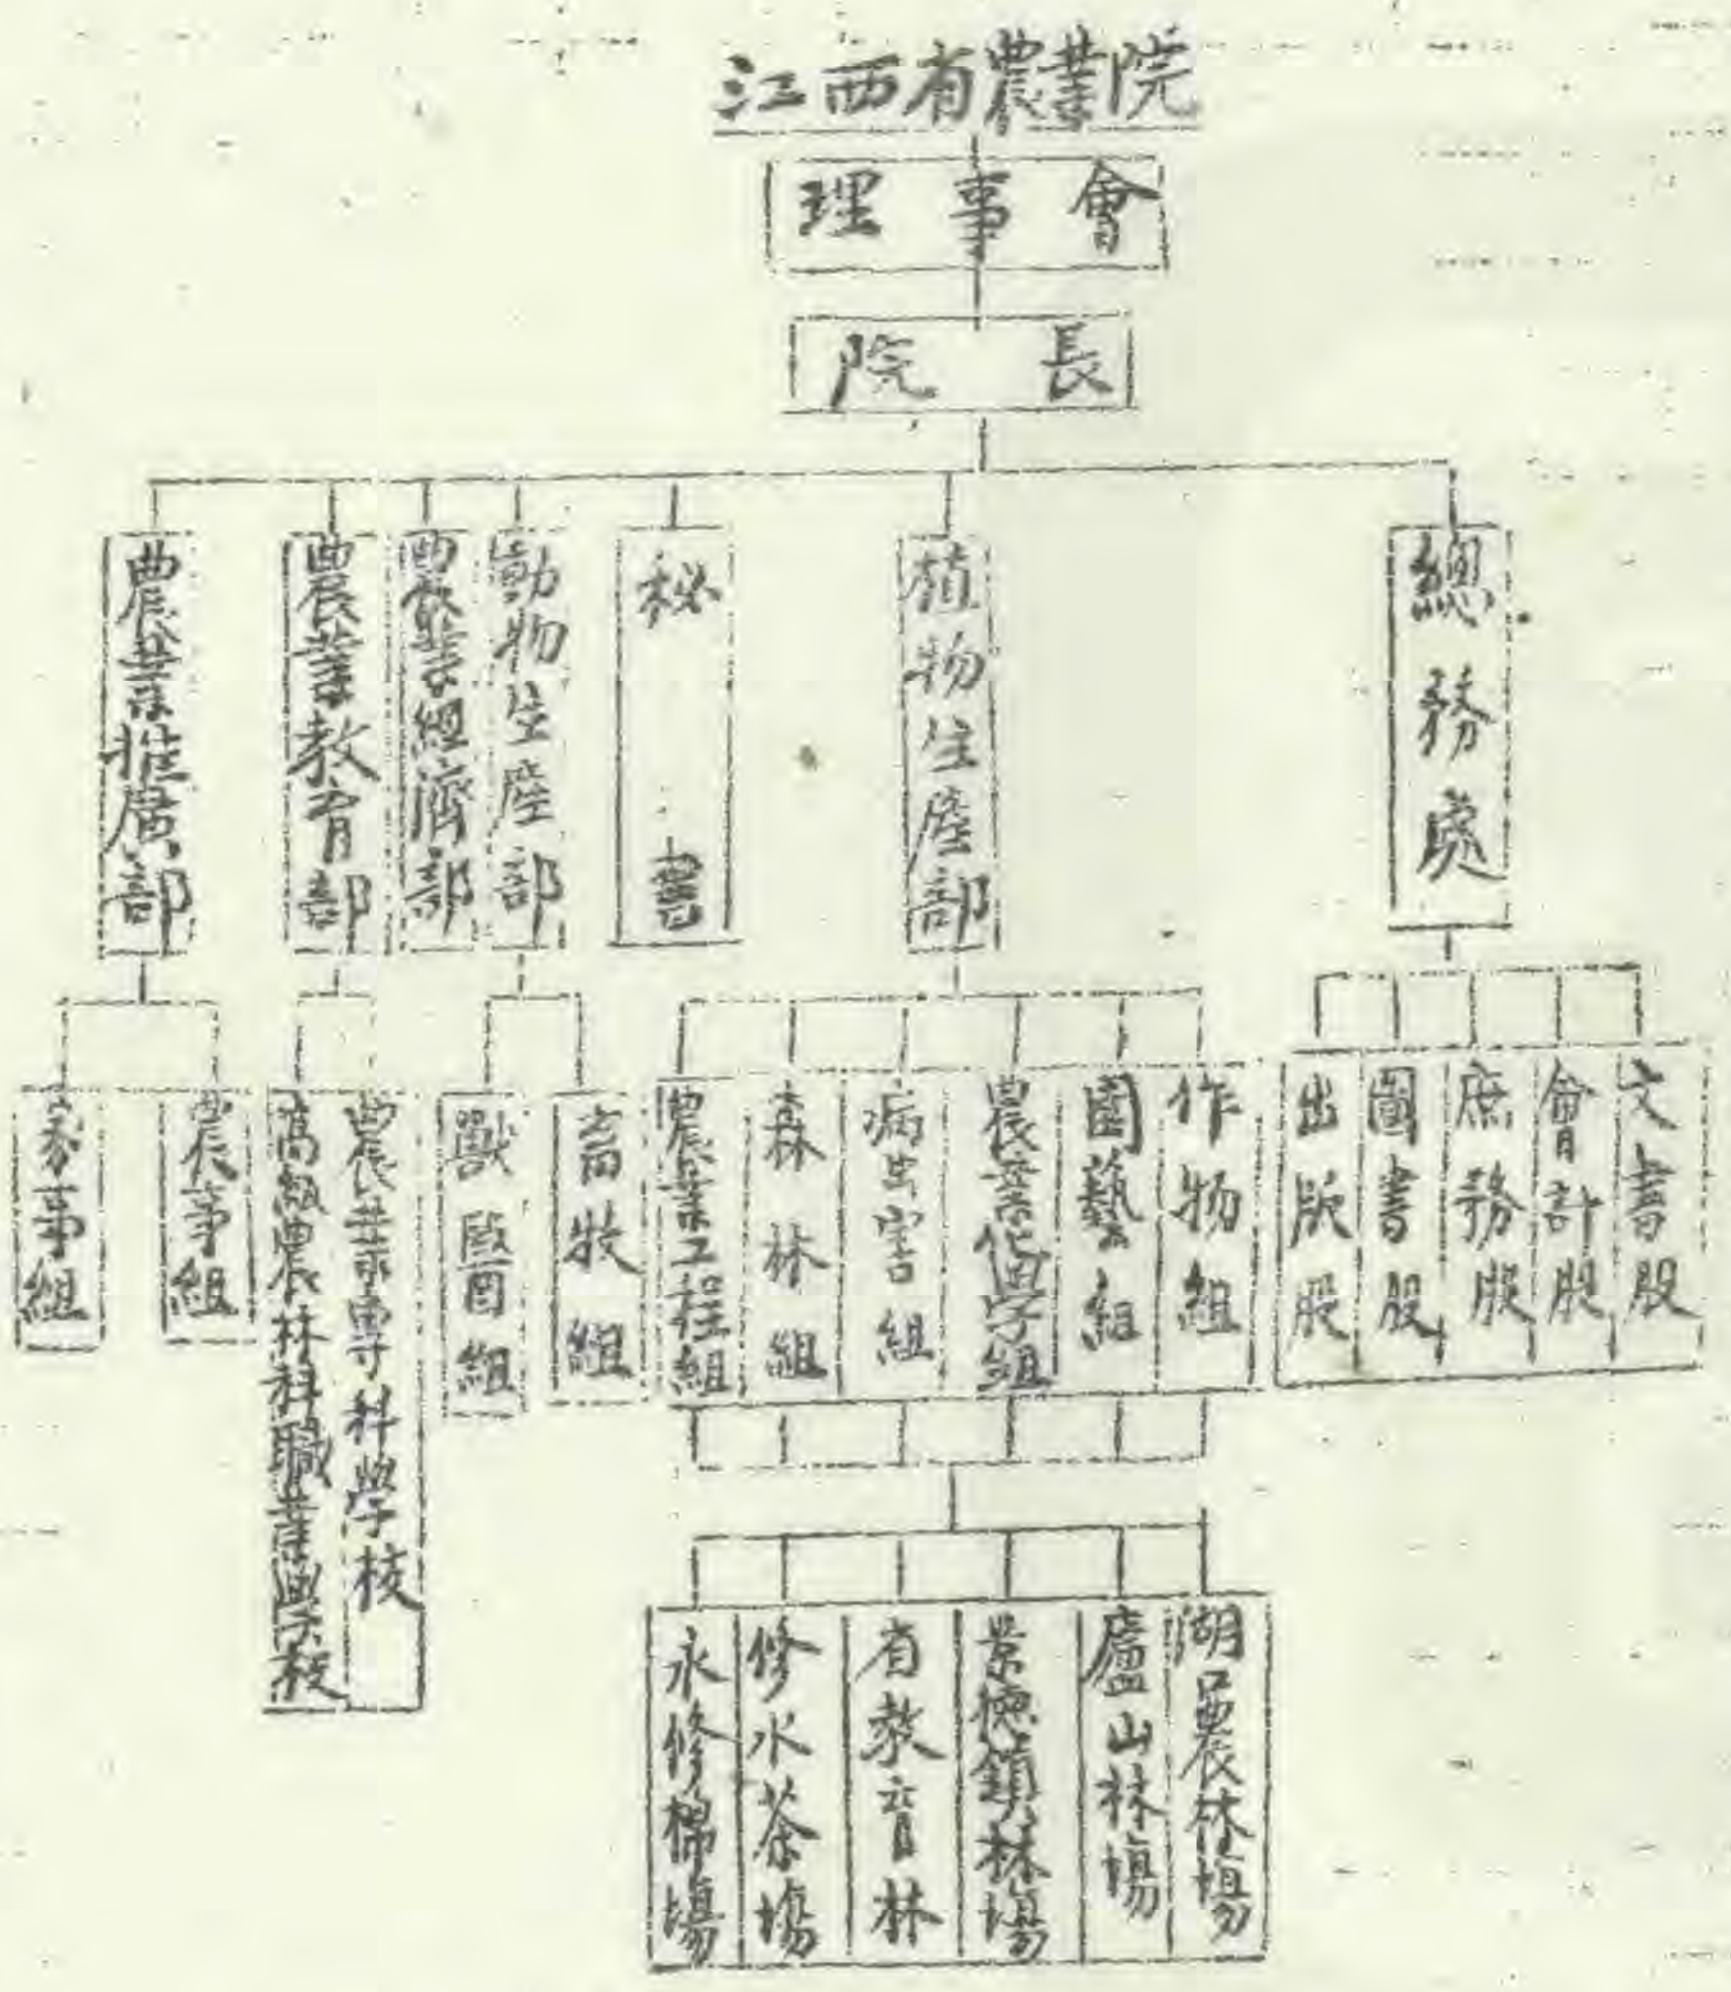 江西省農業院
理事會
院長
總務處
植物生產部
秘書
動物生產部
農業經濟部
農業教育部
農業推廣部
文書股
會計股
庶務股
圖書股
出版股
作物組
園藝組
農業化學組
病虫害組
森林組
農業工程組
畜牧組
獸醫組
農業專科學校
高級農林科職業學校
農事組
家事組
湖口農林場
廬山林場
景德鎮林場
省教育林
修水茶場
永修棉場